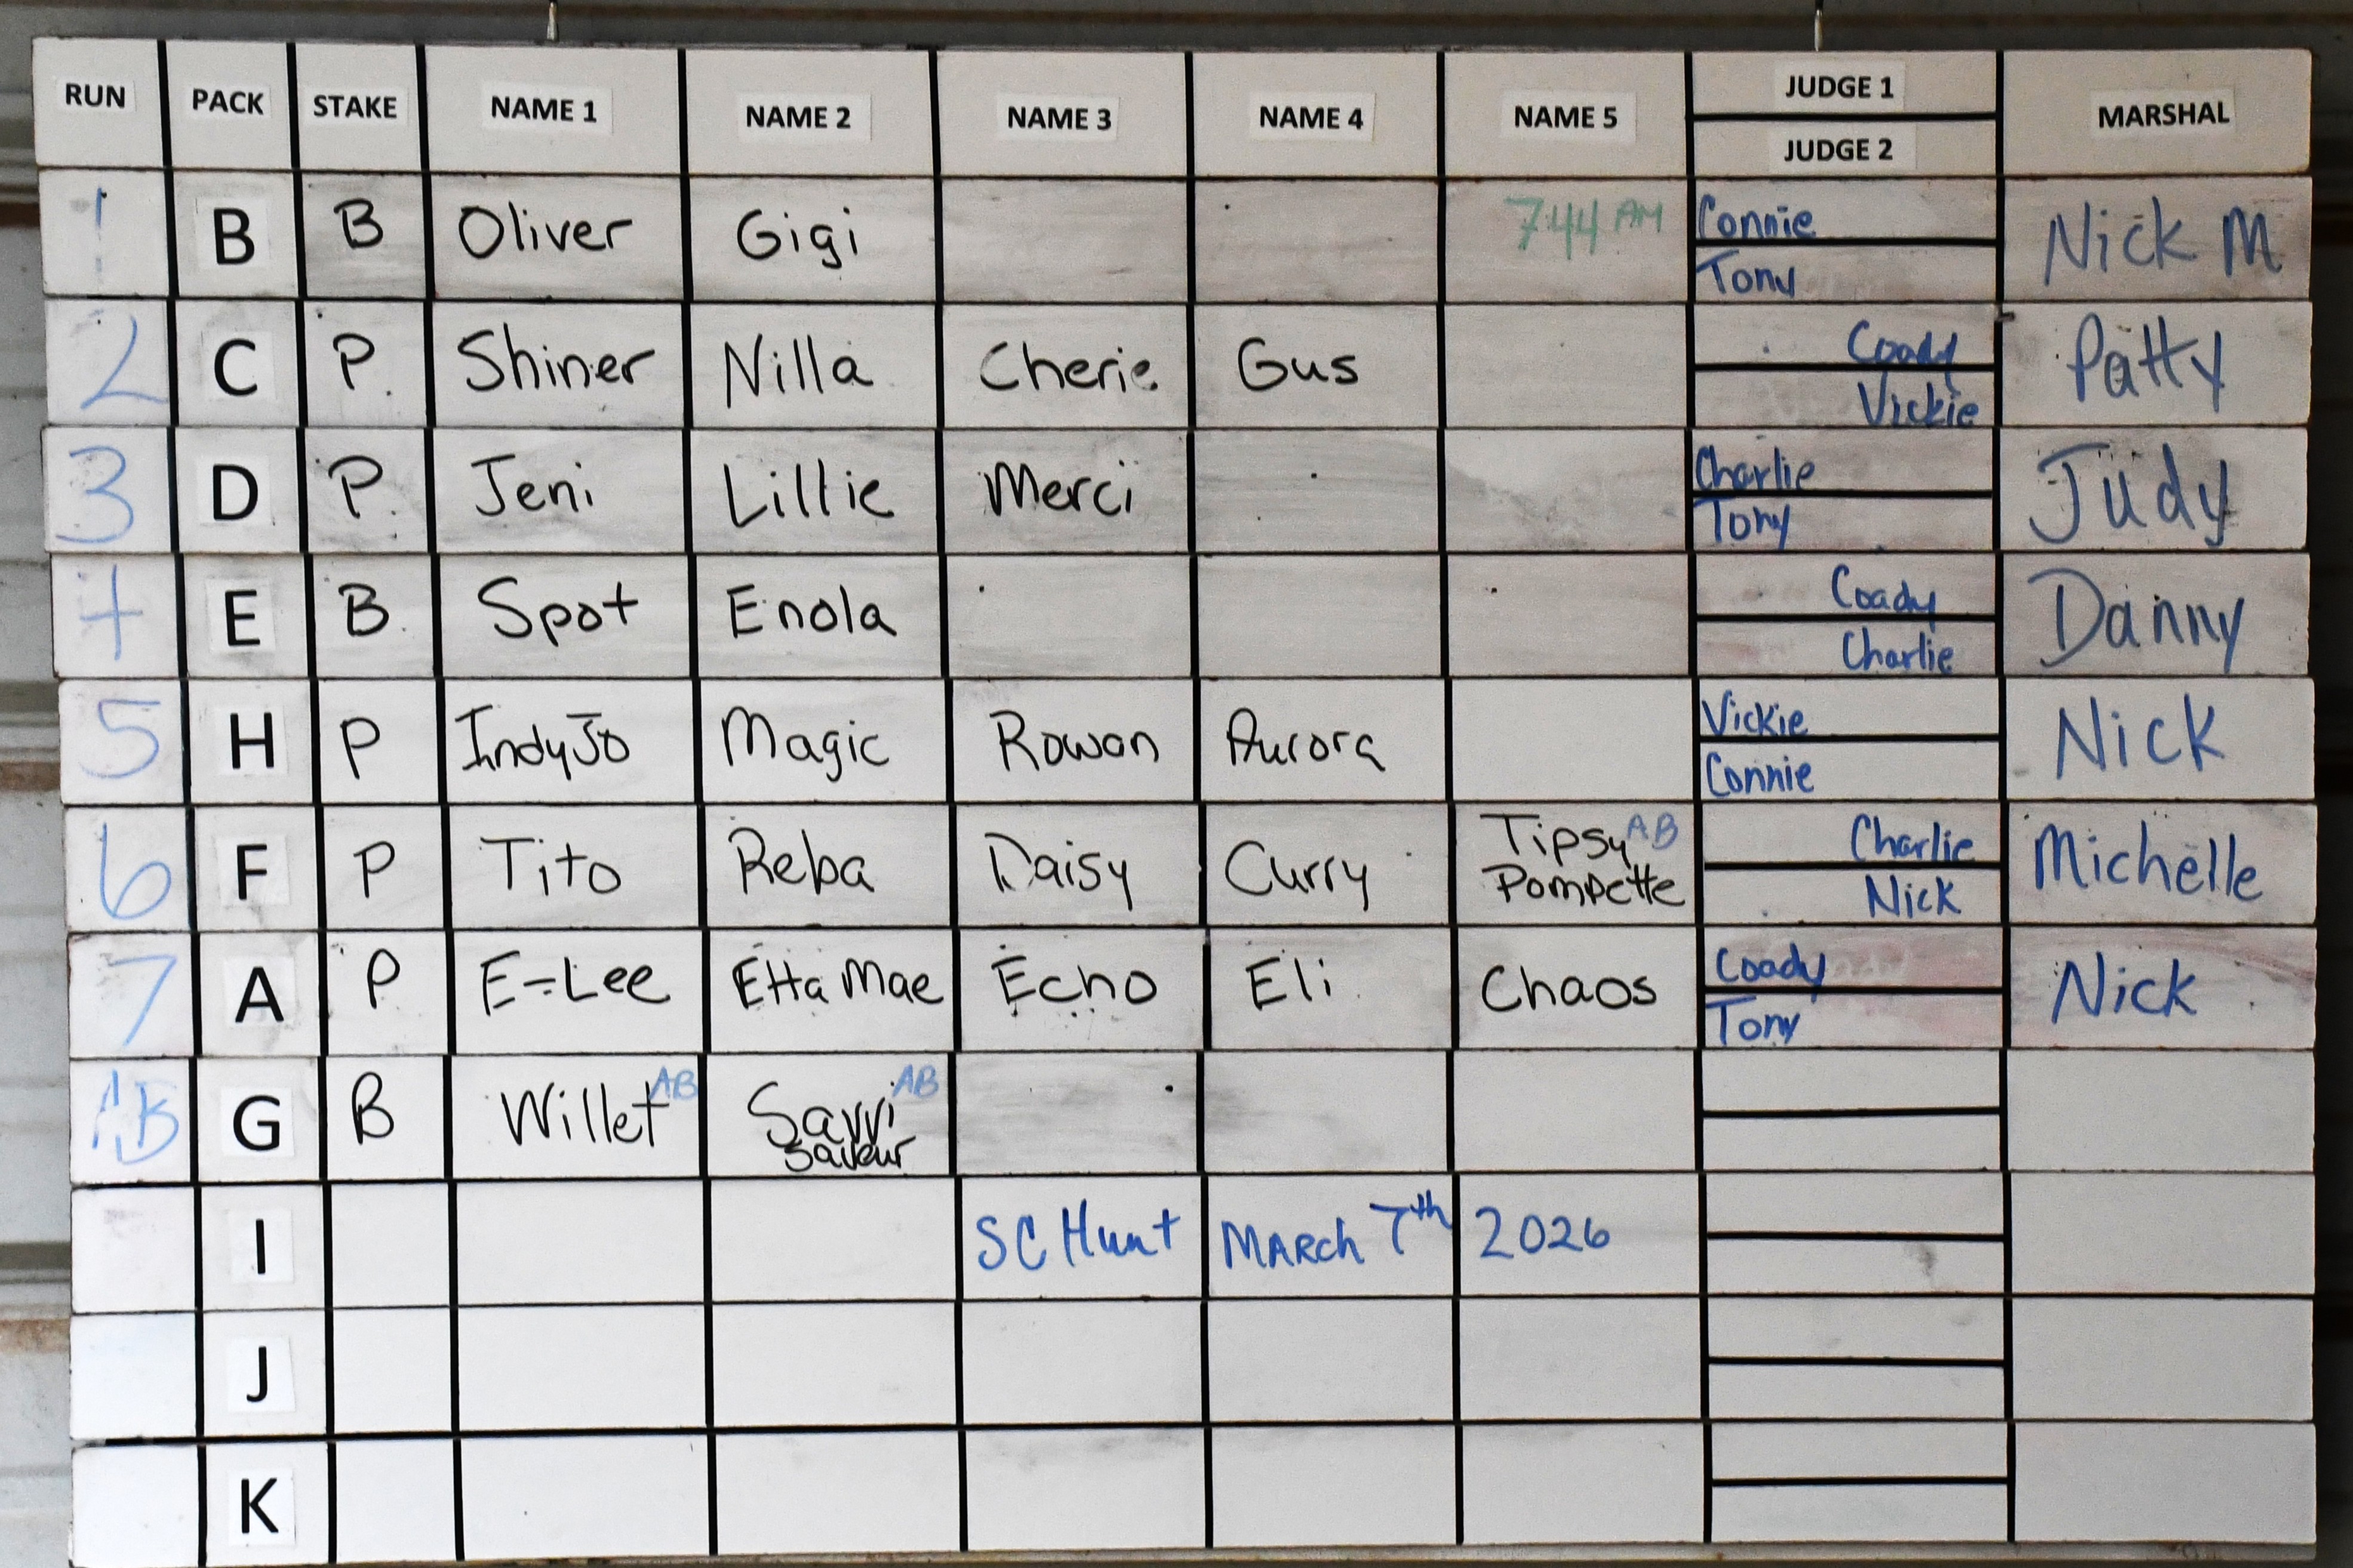 RUN PACK STAKE NAME 1 NAME 2 NAME 3 NAME 4 NAME 5 JUDGE 1 MARSHAL
JUDGE 2
1 B B Oliver Gigi 744 AM Connie Nick M
Tony
2 C P. Shiner Nilla Cherie Gus Coady Patty
Vickie
3 D P. Jeni Lillie Merci Charlie Judy
Tony
4 E B Spot Enola Coady Danny
Charlie
5 H P IndyJo Magic Rowan Aurora Vickie Nick
Connie
6 F P Tito Reba Daisy Curry Tipsy AB Charlie Michelle
Pompette Nick
7 A P E-Lee Etta Mae Echo Eli Chaos Coady Nick
Tony
AB G B Willet AB Savvi AB
Saveur
I SC Hunt MARCH 7th 2026
J
K